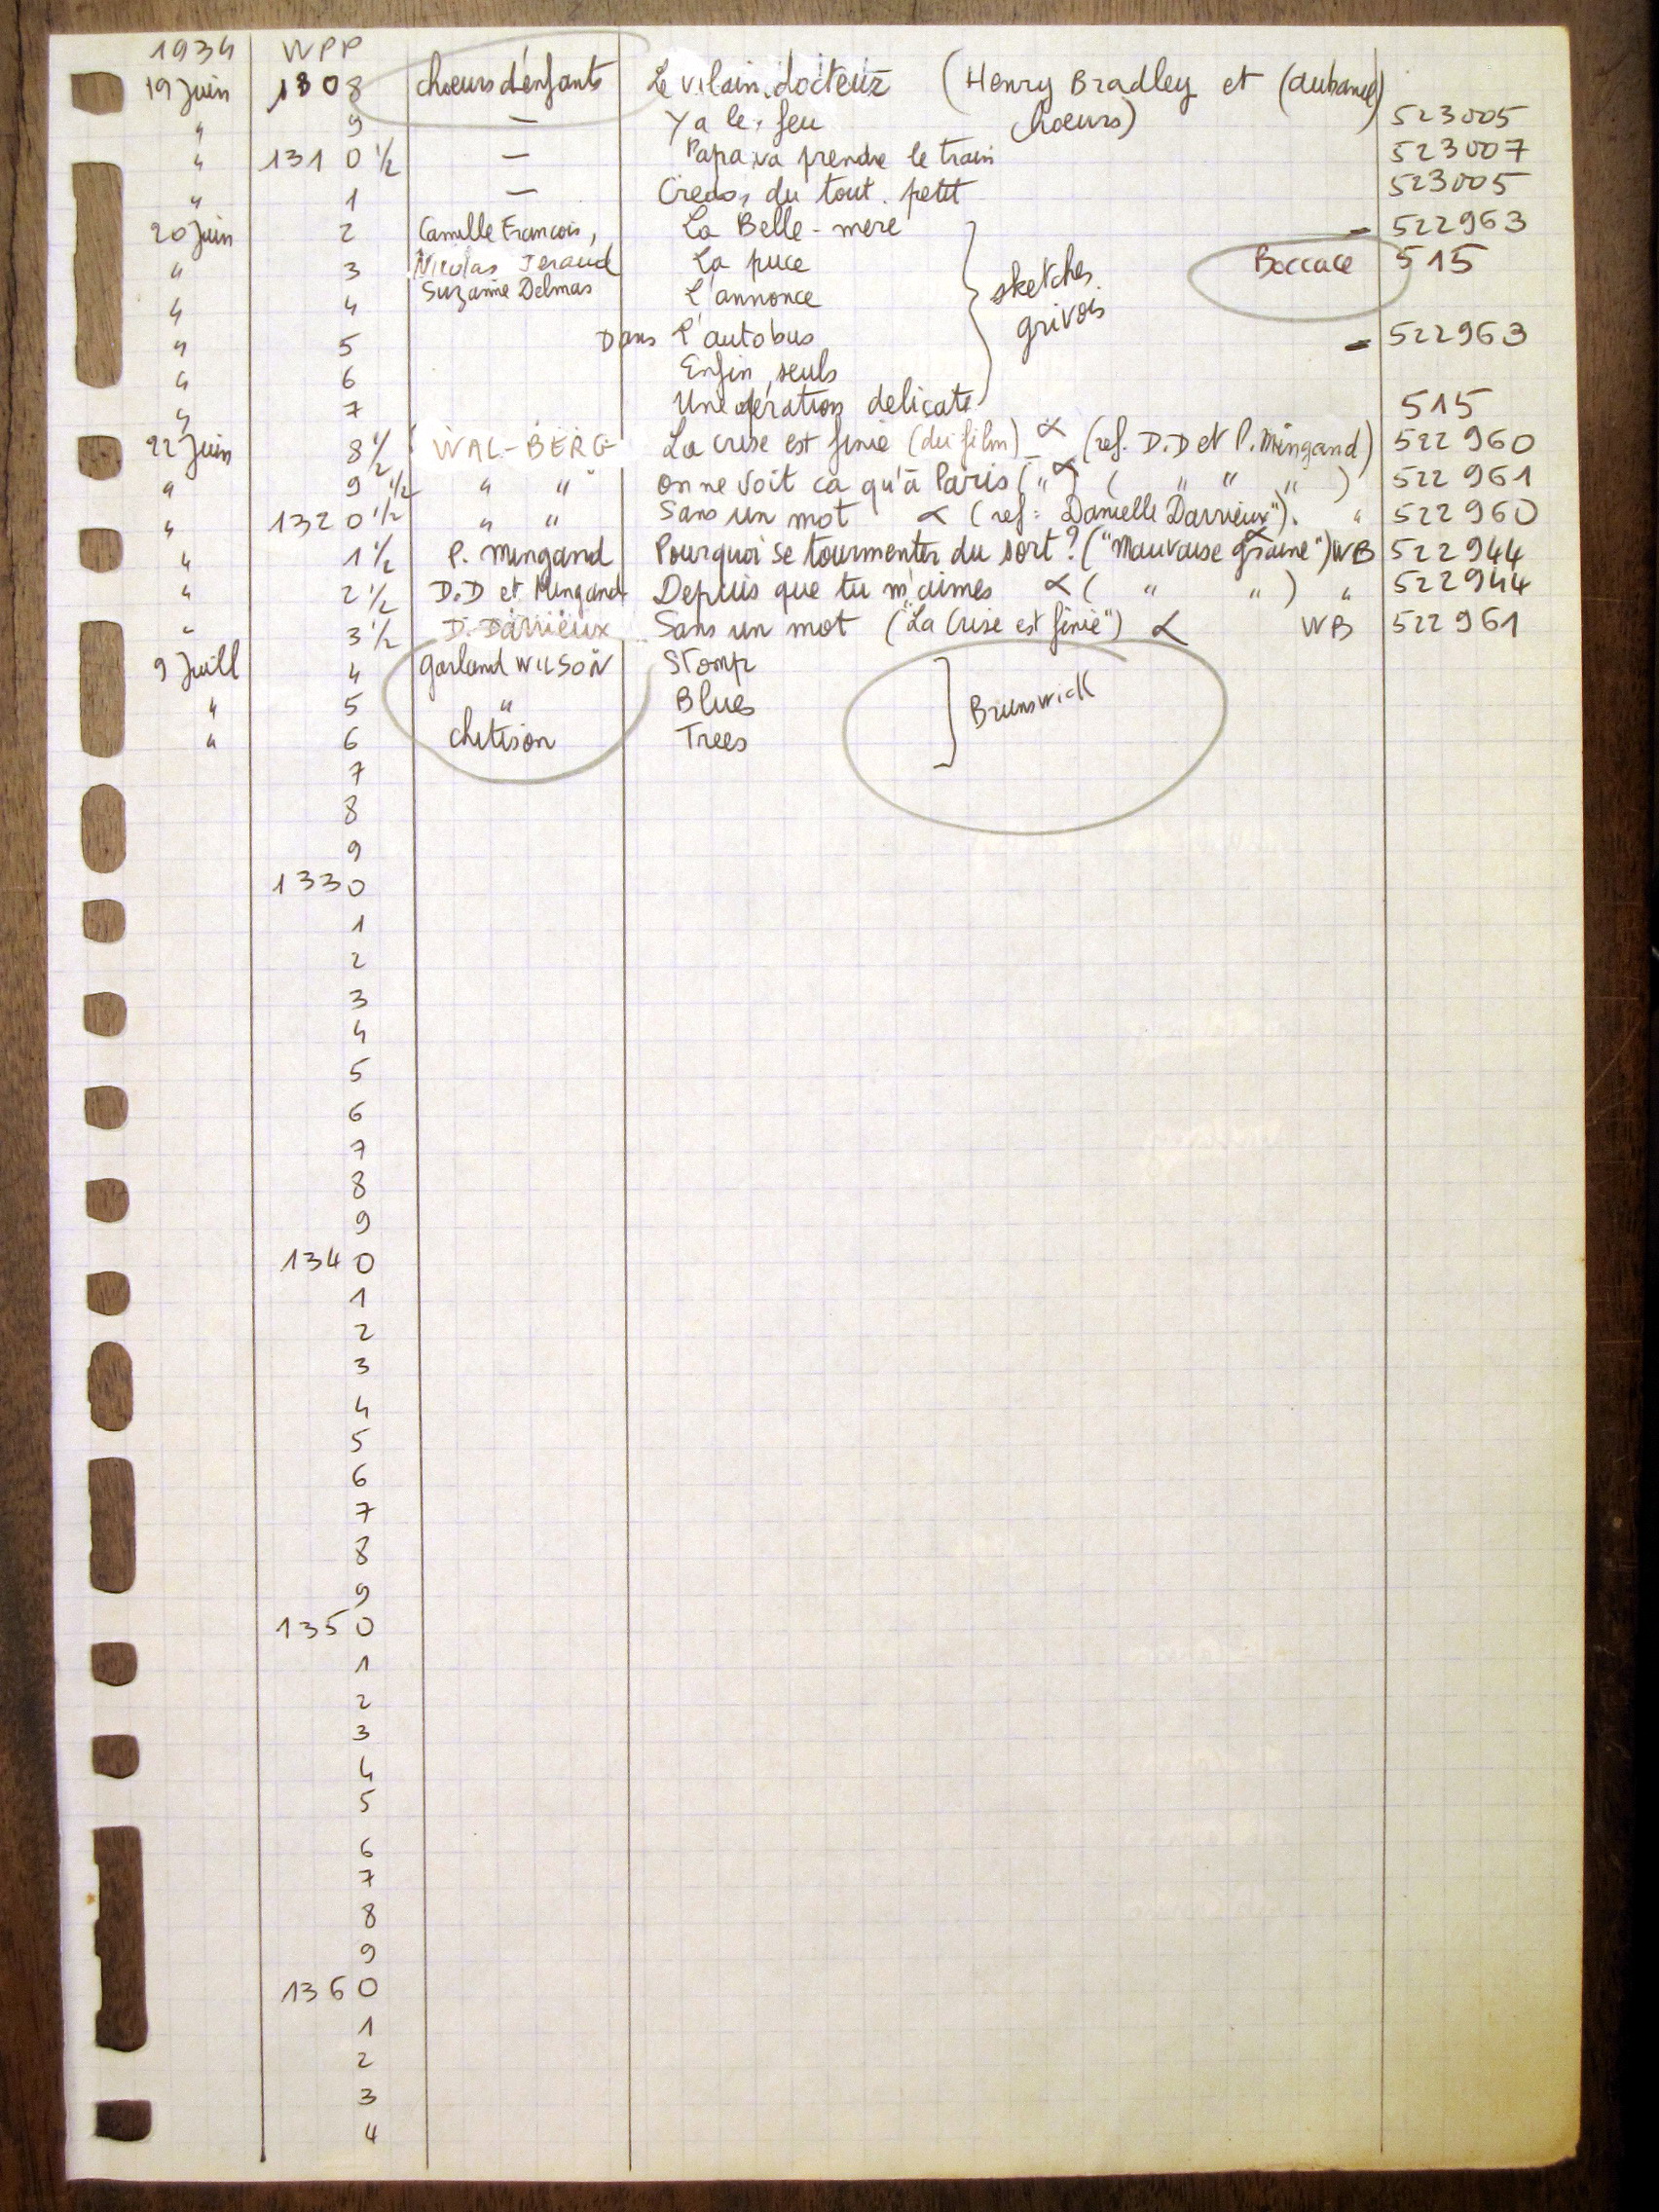 1934 WPP
19 Juin 1308 choeurs d'enfants Le vilain docteur (Henry Bradley et (aubanel)
" 9 — Y a le feu choeurs) 523005
" 131 0 ½ — Papa va prendre le train 523007
" 1 — Credo, du tout petit 523005
20 Juin 2 Camille Francois, La Belle-mere - 522963
" 3 Nicolas Jeraud La puce sketches Boccace 515
" 4 Suzanne Delmas L'annonce grivois
" 5 Dans l'autobus - 522963
" 6 Enfin, seuls
" 7 Une opération delicate 515
22 Juin 8 ½ WAL-BERG La crise est finie (du film) α (ref. D.D et P. Mingand) 522960
" 9 ½ " " on ne voit ca qu'à Paris (" α) ( " " " ) 522961
" 132 0 ½ " " Sans un mot α (ref: Danielle Darrieux"). " 522960
" 1 ½ P. Mingand Pourquoi se tourmenter du sort? ("Mauvaise graine") α WB 522944
" 2 ½ D.D et Mingand Depuis que tu m'aimes α ( " " ) " 522944
" 3 ½ D. Darrieux Sans un mot ("La Crise est finie") α WB 522961
9 Juill 4 Garland WILSON Stomp
" 5 " Blues Brunswick
" 6 chitison Trees
7
8
9
1330
1
2
3
4
5
6
7
8
9
1340
1
2
3
4
5
6
7
8
9
1350
1
2
3
4
5
6
7
8
9
1360
1
2
3
4